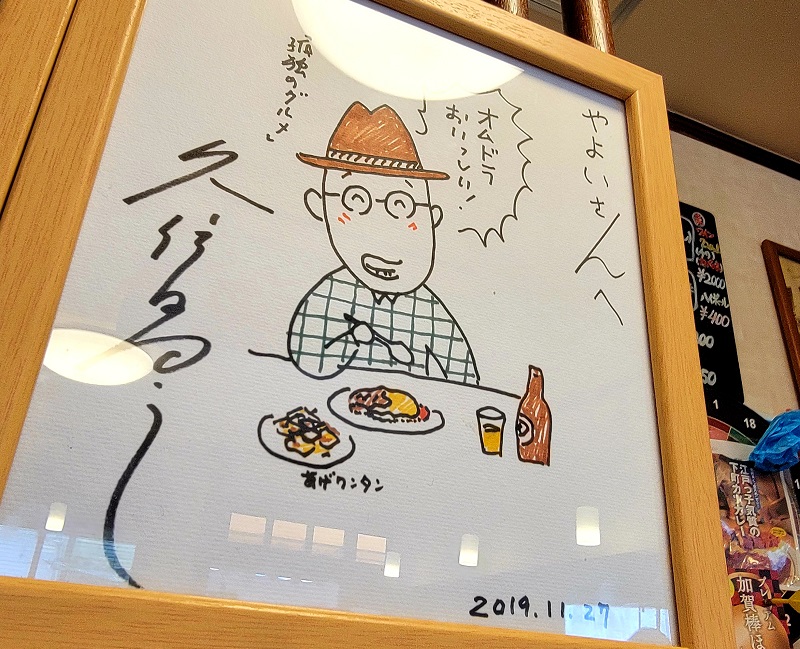 やよいさんへ
オムドラ
おいっしい!
孤独のグルメ」
久住昌之
あげワンタン
2019.11.27
¥2000
ハイボール
¥400
1
18
江戸っ子気質の
下町カツカレー
プレミアム
加賀棒ほ
2